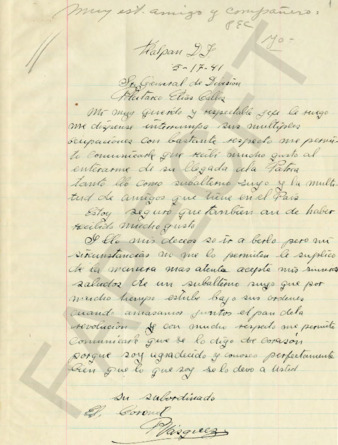 muy est. amigo y compañero.
PEC
Tlalpan D.F.
5-17-41
Sr General de División
Plutarco Elías Calles
Mi muy querido y respetable jefe le ruego
me dispense interrumpa sus multiples
ocupaciones con bastante respeto me permi-
to comunicarle que recibí mucho gusto al
enterarme de su llegada a la Patria
tanto yo como subalterno suyo y la multi-
tud de amigos que tiene en el Pais
estoy seguro que tambien an de haber
recibido mucho gusto
mis deceos so ir a berlo pero mi
sircunstancias no me lo permiten le suplico
de la manera mas atenta acepte mis
saludos de un subalterno suyo que por
mucho tiempo estubo bajo sus ordenes
cuando juntos el pan de la
revolución y con mucho respeto me permito
comunicarle que se lo digo de corazón
porque soy agradecido y conosco perfectamente
bien que lo que soy se lo devo a Usted
su subordinado
El Coronel
P Vásquez
FAPECFT